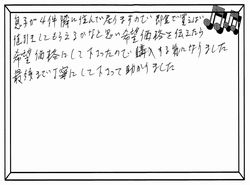 息子が4件隣に住んで居りますので 即金で買えば
値引きしてもらえるかなと思い希望価格を伝えたら
希望価格にして下さったので購入する事になりました
最後まで丁寧にして下さって助かりました